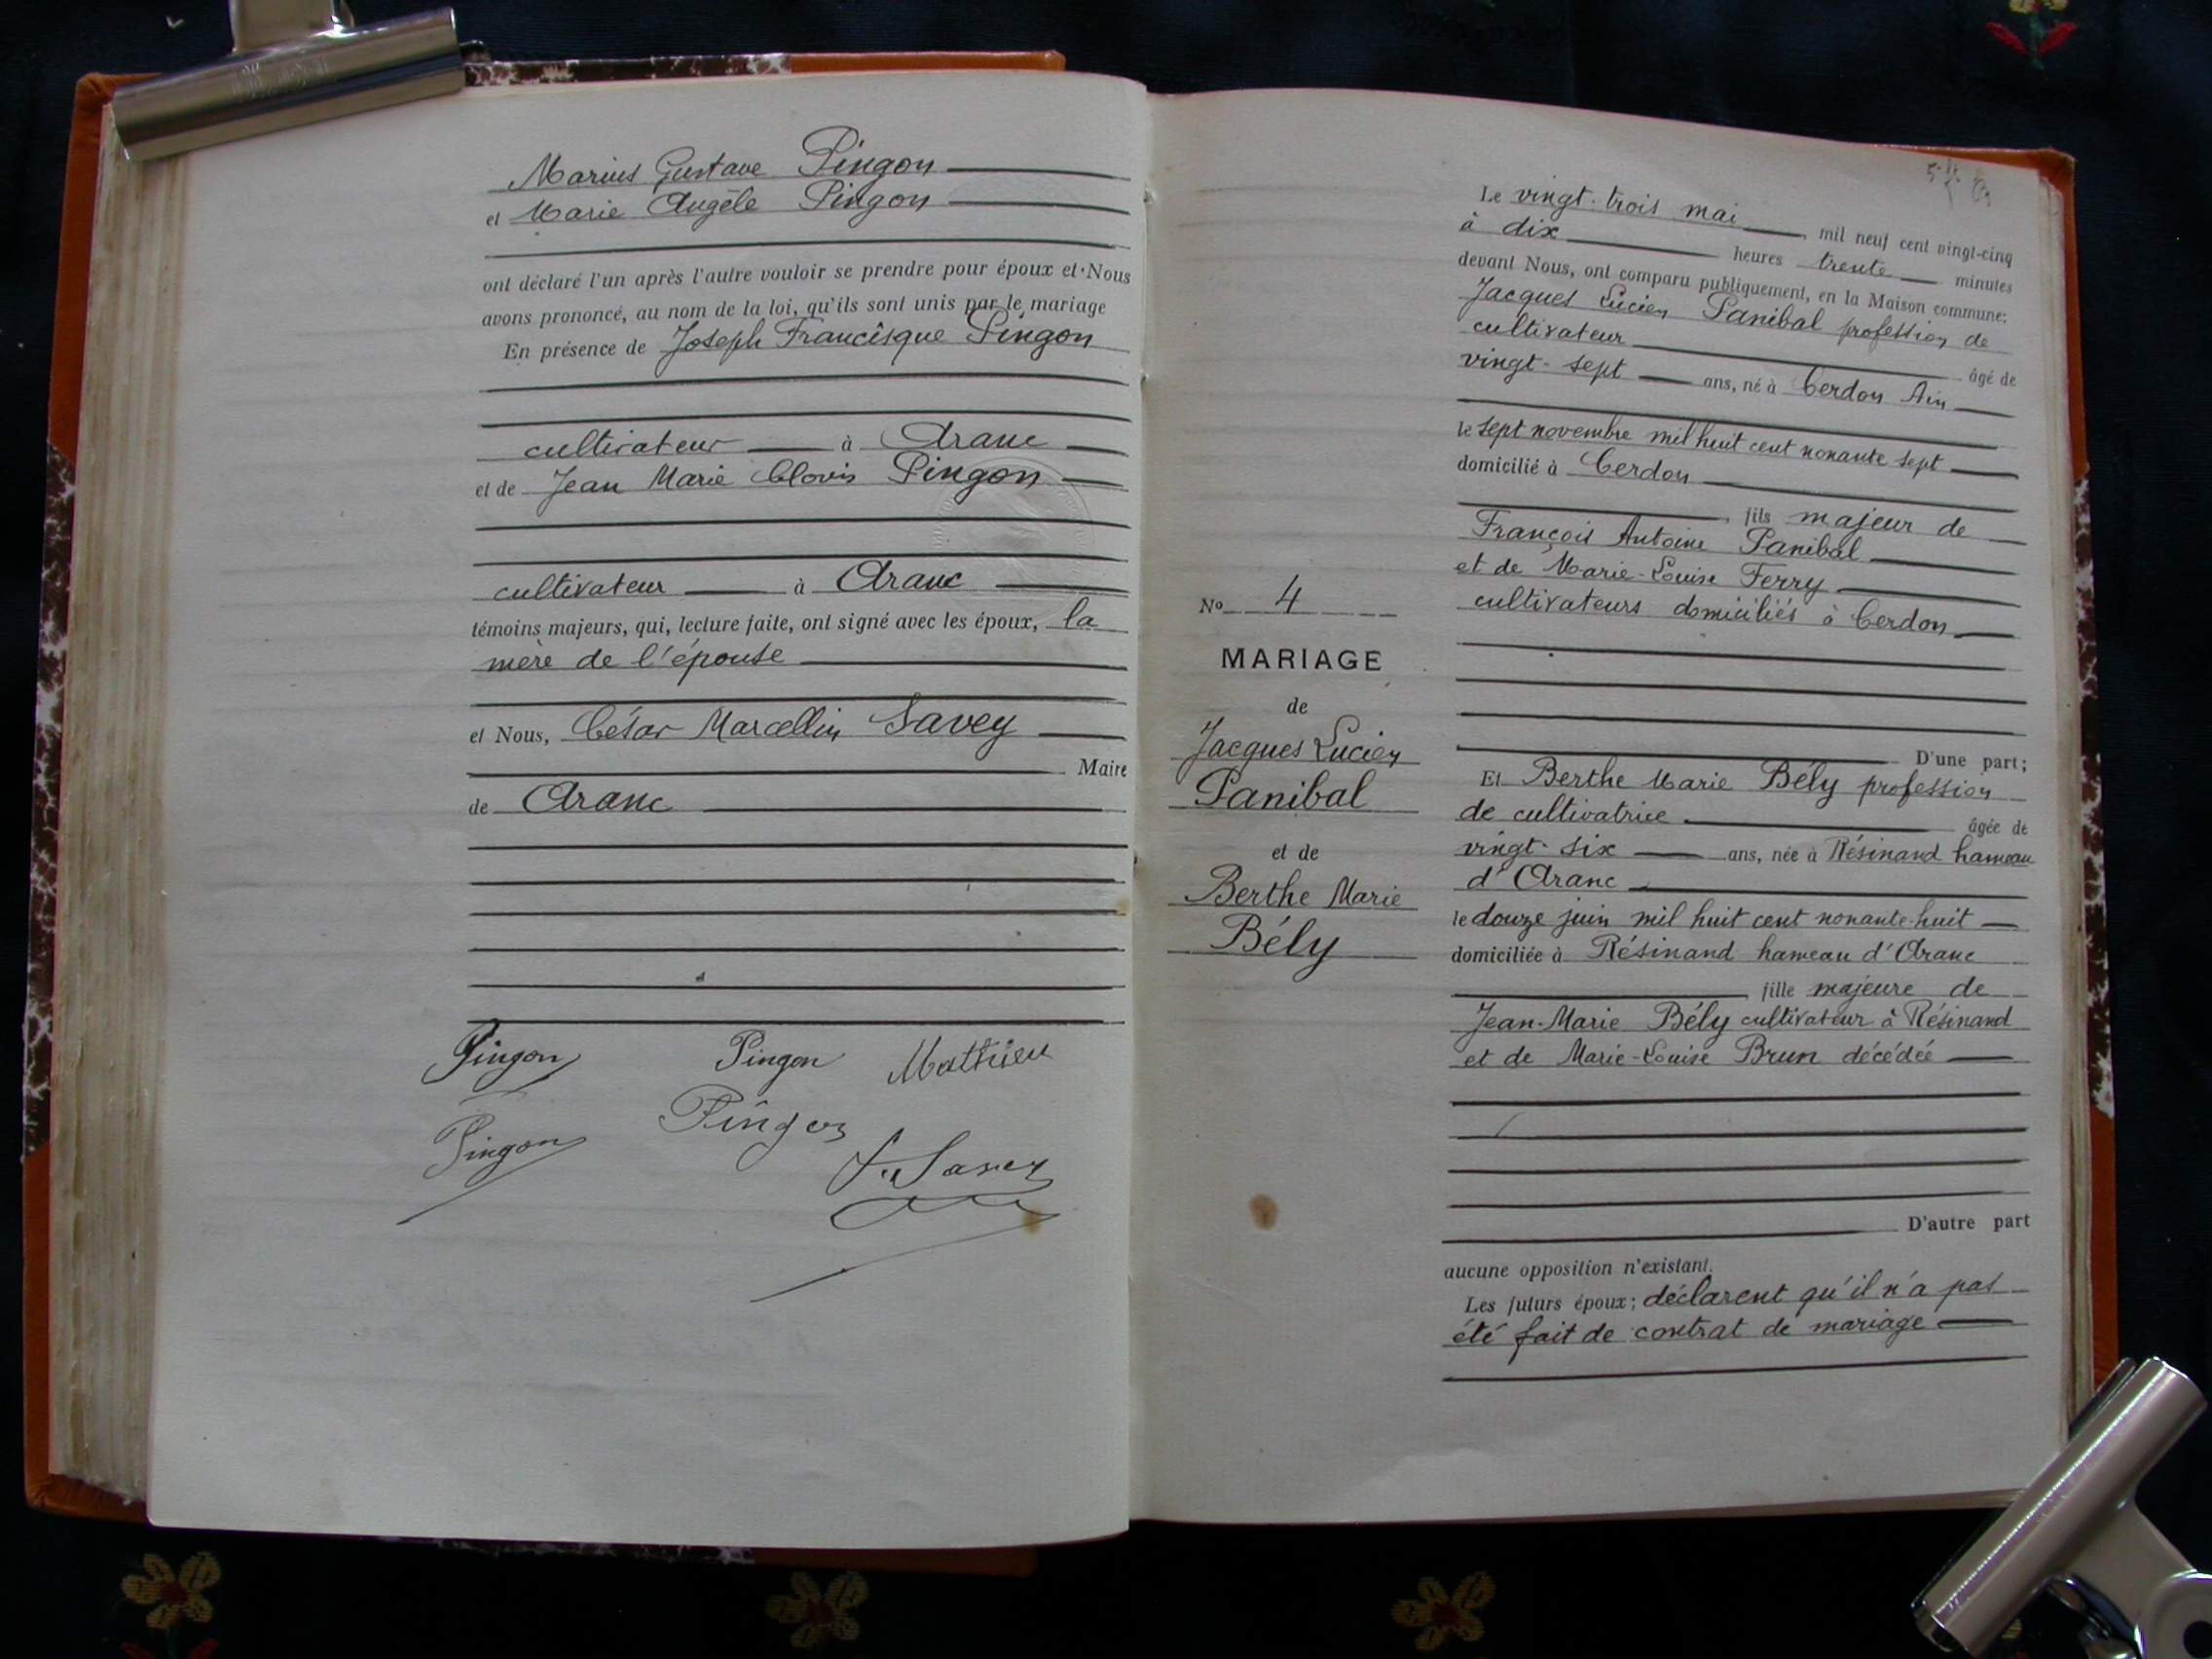 Marius Gustave Pingon
et Marie Angèle Pingon
ont déclaré l'un après l'autre vouloir se prendre pour époux et Nous
avons prononcé, au nom de la loi, qu'ils sont unis par le mariage
En présence de Joseph Francisque Pingon
cultivateur à Aranc
et de Jean Marie Clovis Pingon
cultivateur à Aranc
témoins majeurs, qui, lecture faite, ont signé avec les époux, la
mère de l'épouse
et Nous, César Marcellin Savey
Maire
de Aranc
Pingon Pingon Mathieu
Pingon Pingon
Savey
No 4
MARIAGE
de
Jacques Lucien
Panibal
et de
Berthe Marie
Bély
Le vingt-trois mai mil neuf cent vingt-cinq
à dix heures trente minutes
devant Nous, ont comparu publiquement, en la Maison commune:
Jacques Lucien Panibal profession de
cultivateur âgé de
vingt-sept ans, né à Cerdon Ain
le sept novembre mil huit cent nonante sept
domicilié à Cerdon
fils majeur de
François Antoine Panibal
et de Marie-Louise Ferry
cultivateurs domiciliés à Cerdon
D'une part;
Et Berthe Marie Bély profession
de cultivatrice âgée de
vingt-six ans, née à Résinand hameau
d'Aranc
le douze juin mil huit cent nonante-huit
domiciliée à Résinand hameau d'Aranc
fille majeure de
Jean-Marie Bély cultivateur à Résinand
et de Marie-Louise Brun décédée
D'autre part
aucune opposition n'existant.
Les futurs époux; déclarent qu'il n'a pas
été fait de contrat de mariage